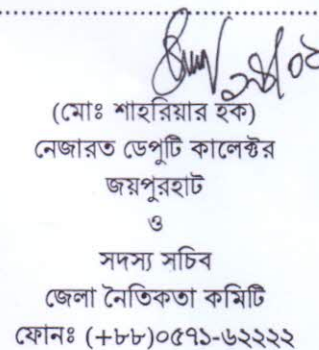 (মোঃ শাহরিয়ার হক)
নেজারত ডেপুটি কালেক্টর
জয়পুরহাট
ও
সদস্য সচিব
জেলা নৈতিকতা কমিটি
ফোনঃ (+৮৮)০৫৭১-৬২২২২